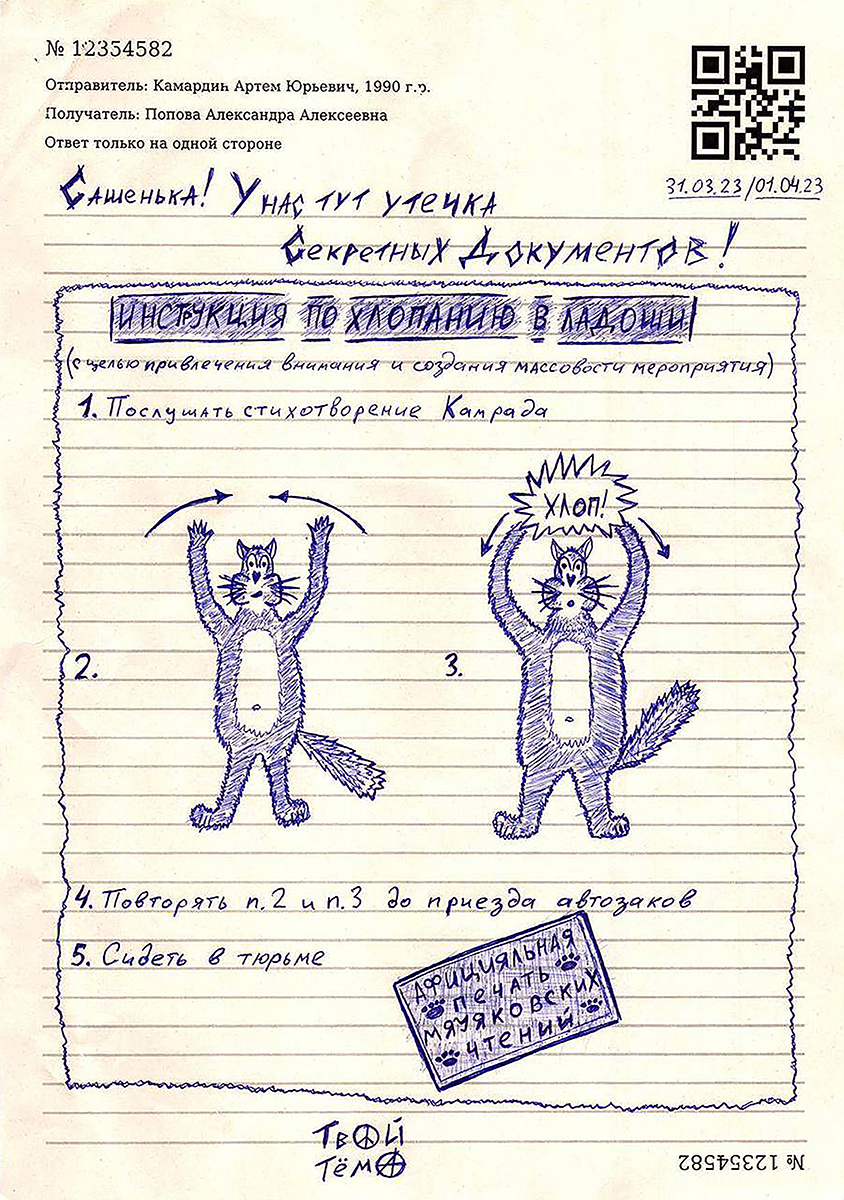 № 12354582
Отправитель: Камардин Артем Юрьевич, 1990 г.р.
Получатель: Попова Александра Алексеевна
Ответ только на одной стороне
31.03.23/01.04.23
Сашенька! У нас тут утечка
Секретных Документов!
ИНСТУКЦИЯ ПО ХЛОПАНИЮ В ЛАДОШИ
(с целью привлечения внимания и создания массовости мероприятия)
1. Послушать стихотворение Камрада
ХЛОП!
2.
3.
4. Повторять п.2 и п.3 до приезда автозаков
5. Сидеть в тюрьме
АФИЦИЯЛЬНАЯ
ПЕЧАТЬ
МЯУЯКОВСКИХ
ЧТЕНИЙ
ТВОЙ
ТЁМА
№ 12354582